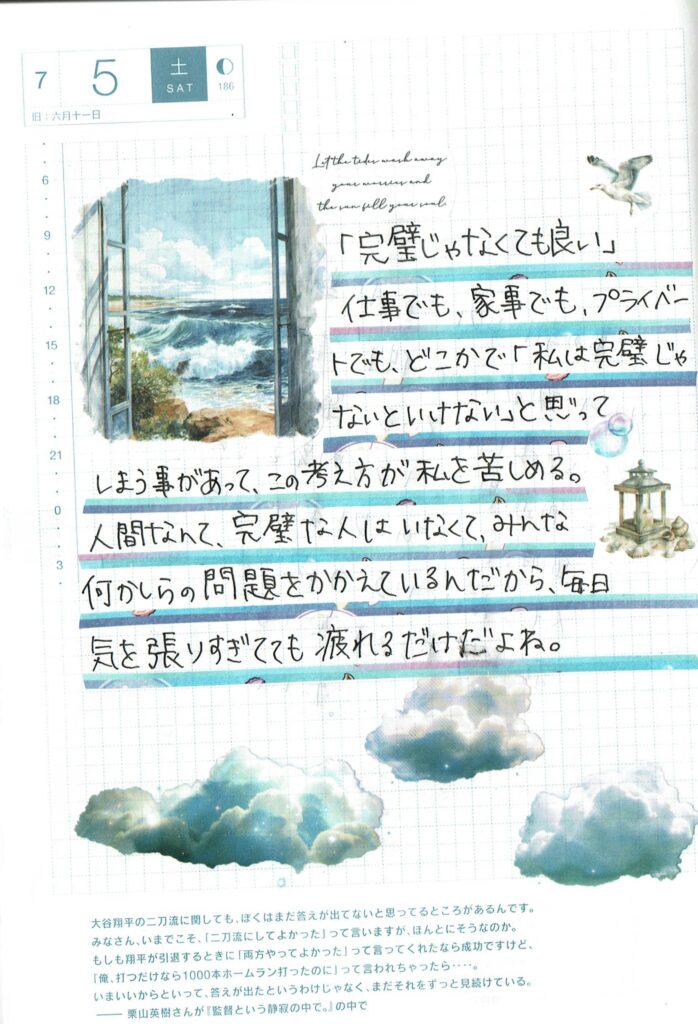 7 5 土 SAT 186
旧：六月十一日
6
9
12
15
18
21
0
3
Let the tides wash away
your worries and
the sun fill your soul.
「完璧じゃなくても良い」
仕事でも、家事でも、プライバー
トでも、どこかで「私は完璧じゃ
ないといけない」と思って
しまう事があって、この考え方が私を苦しめる。
人間なんて、完璧な人はいなくて、みんな
何かしらの問題をかかえているんだから、毎日
気を張りすぎてても疲れるだけだよね。
大谷翔平の二刀流に関しても、ぼくはまだ答えが出てないと思ってるところがあるんです。
みなさん、いまでこそ、「二刀流にしてよかった」って言いますが、ほんとにそうなのか。
もしも翔平が引退するときに「両方やってよかった」って言ってくれたなら成功ですけど、
「俺、打つだけなら1000本ホームラン打ったのに」って言われちゃったら‥‥。
いまいいからといって、答えが出たというわけじゃなく、まだそれをずっと見続けている。
—— 栗山英樹さんが『監督という静寂の中で。』の中で